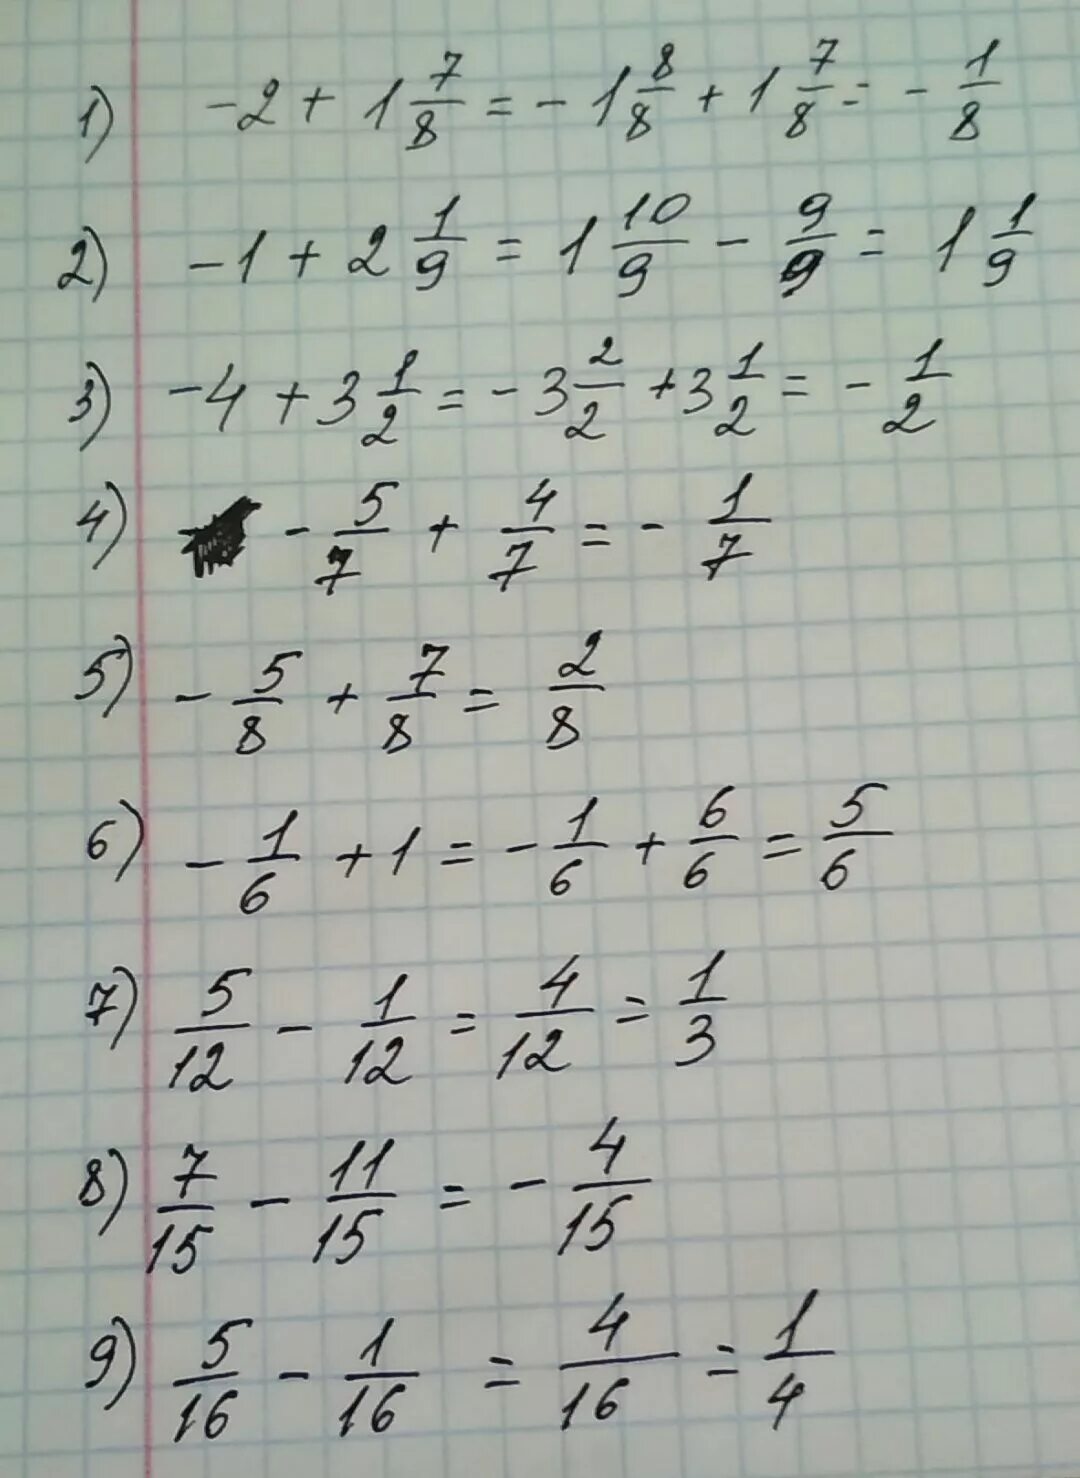 1) -2 + 1 7/8 = -1 8/8 + 1 7/8 = - 1/8
2) -1 + 2 1/9 = 1 10/9 - 9/9 = 1 1/9
3) -4 + 3 1/2 = -3 2/2 + 3 1/2 = - 1/2
4) - 5/7 + 4/7 = - 1/7
5) - 5/8 + 7/8 = 2/8
6) - 1/6 + 1 = - 1/6 + 6/6 = 5/6
7) 5/12 - 1/12 = 4/12 = 1/3
8) 7/15 - 11/15 = - 4/15
9) 5/16 - 1/16 = 4/16 = 1/4